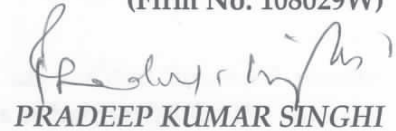 (Firm No. 108029W)
PRADEEP KUMAR SINGHI